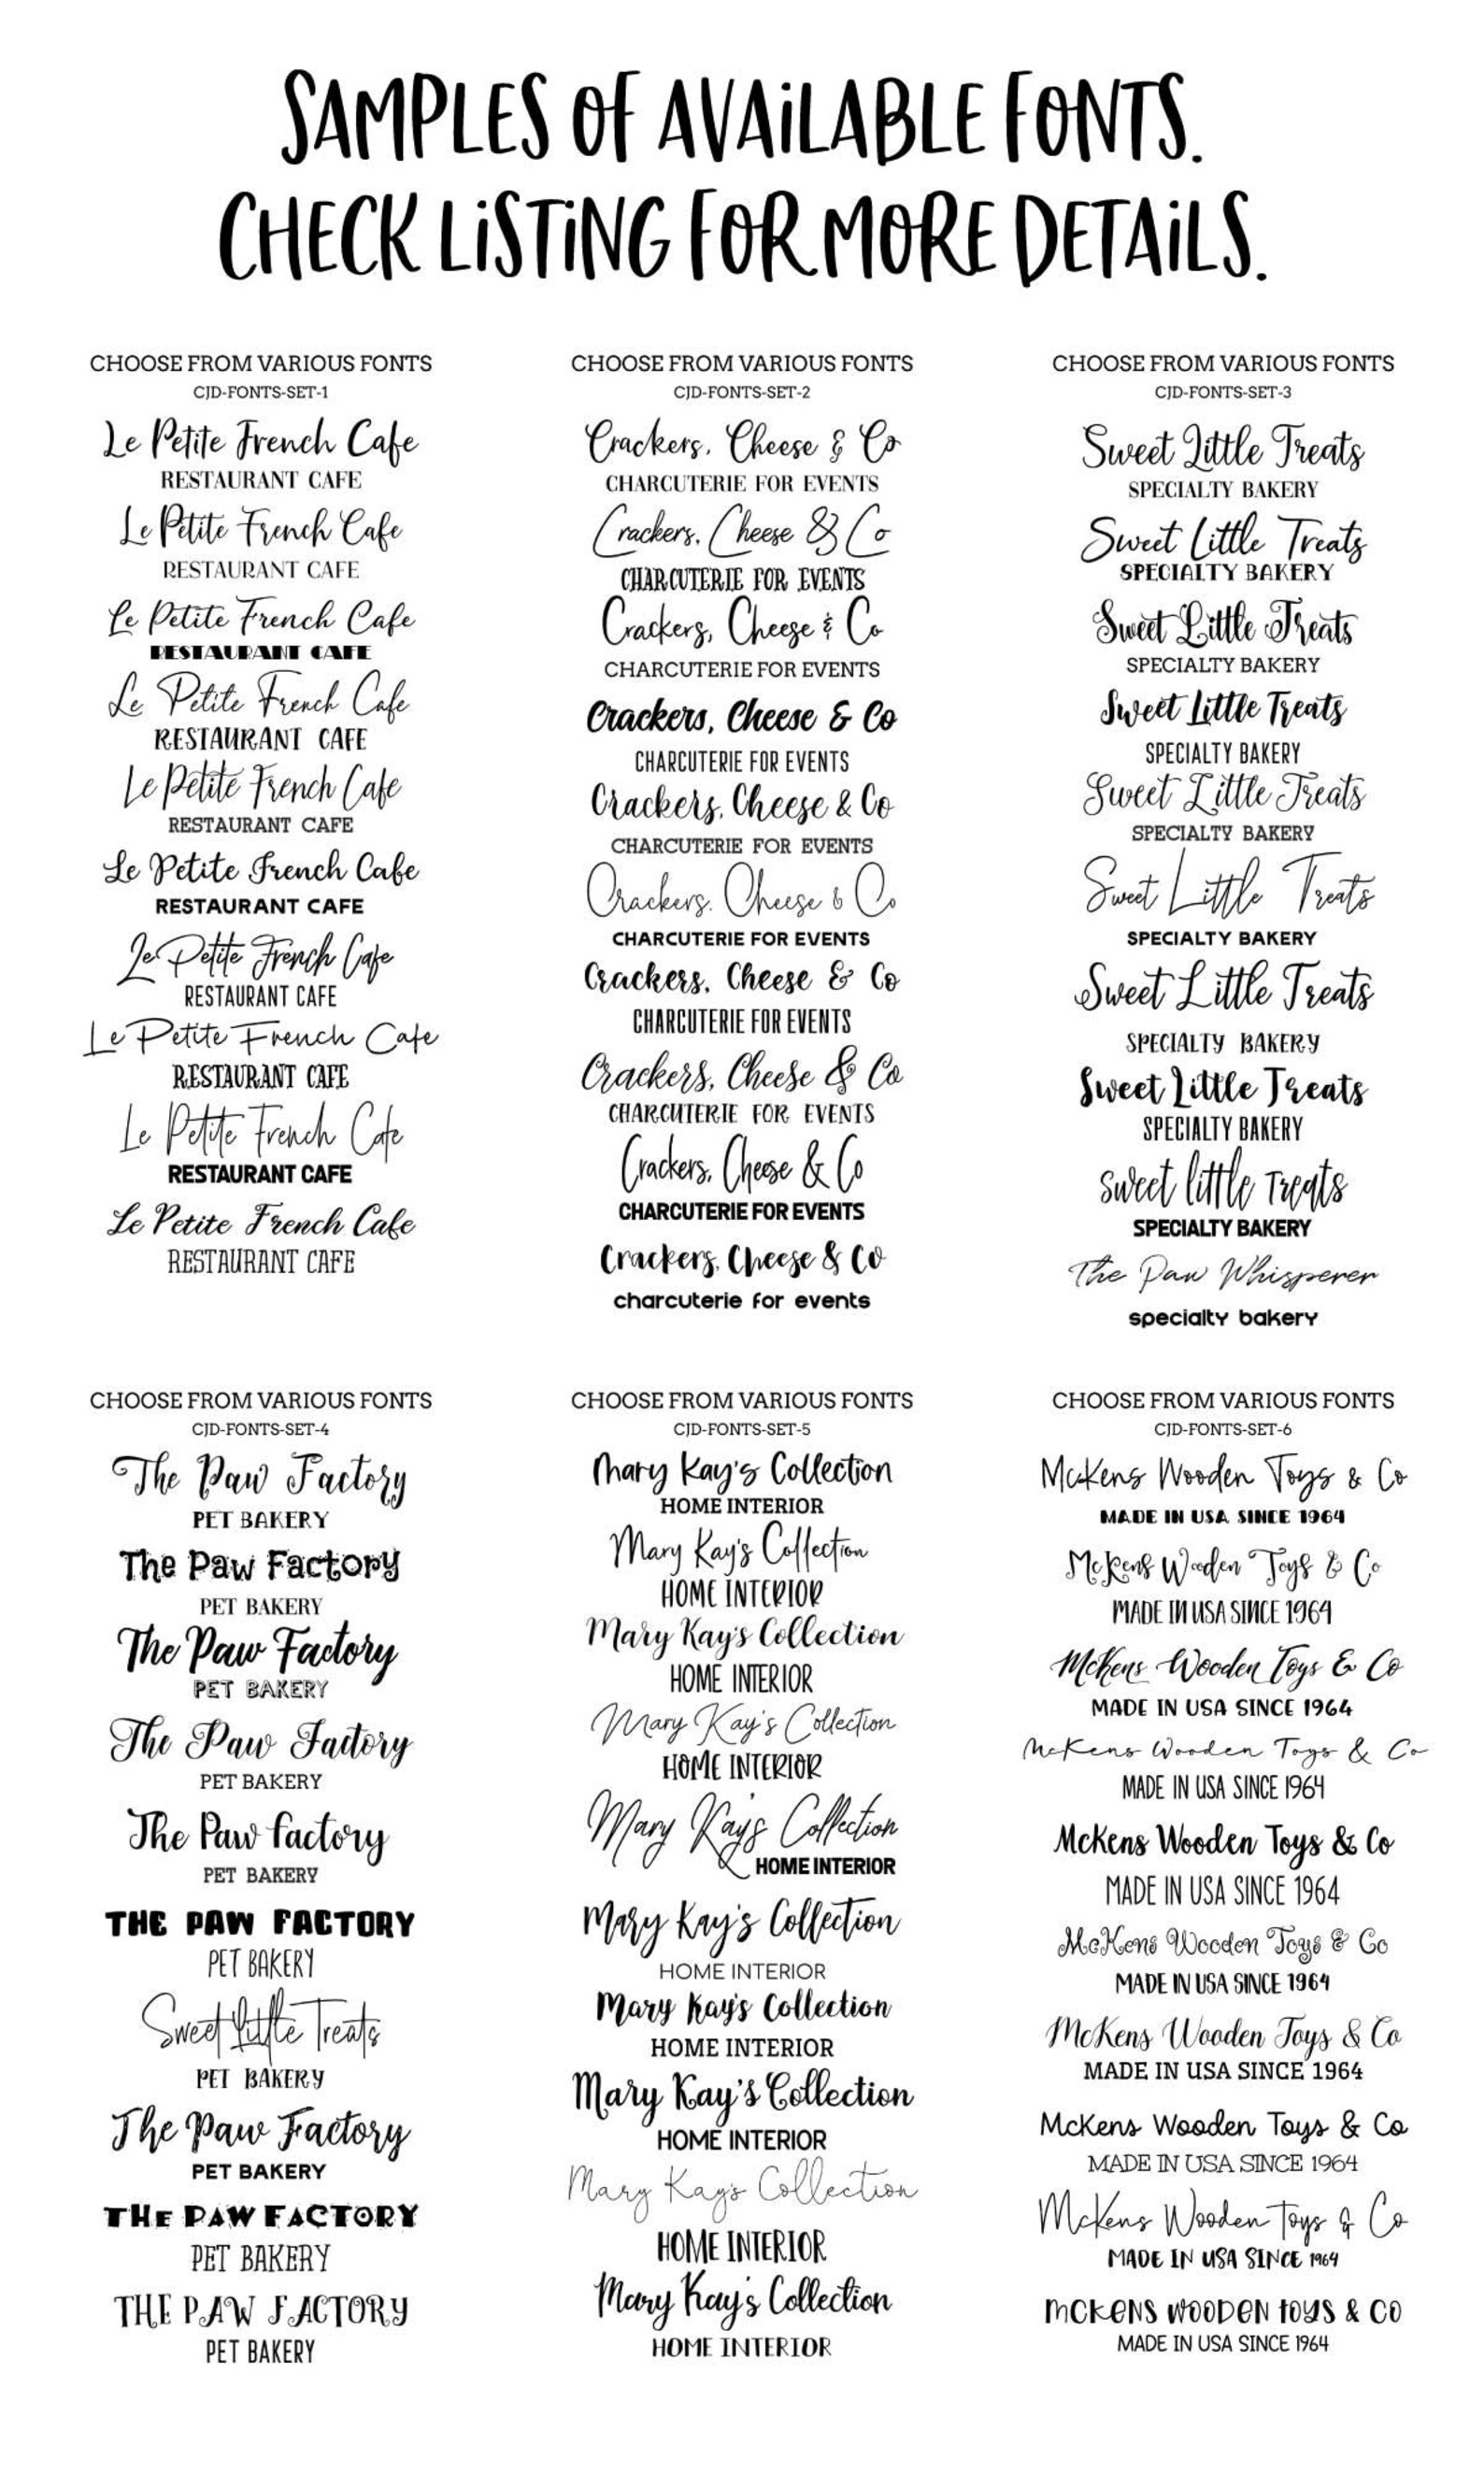 SAMPLES OF AVAiLABLE FONTS.
CHECK LiSTiNG FOR MORE DETAiLS.
CHOOSE FROM VARIOUS FONTS
CJD-FONTS-SET-1
Le Petite French Cafe
RESTAURANT CAFE
Le Petite French Cafe
RESTAURANT CAFE
Le Petite French Cafe
RESTAURANT CAFE
Le Petite French Cafe
RESTAURANT CAFE
Le Petite French Cafe
RESTAURANT CAFE
Le Petite French Cafe
RESTAURANT CAFE
Le Petite French Cafe
RESTAURANT CAFE
Le Petite French Cafe
RESTAURANT CAFE
Le Petite French Cafe
RESTAURANT CAFE
Le Petite French Cafe
RESTAURANT CAFE
CHOOSE FROM VARIOUS FONTS
CJD-FONTS-SET-2
Crackers, Cheese & Co
CHARCUTERIE FOR EVENTS
Crackers, Cheese & Co
CHARCUTERIE FOR EVENTS
Crackers, Cheese & Co
CHARCUTERIE FOR EVENTS
Crackers, Cheese & Co
CHARCUTERIE FOR EVENTS
Crackers, Cheese & Co
CHARCUTERIE FOR EVENTS
Crackers, Cheese & Co
CHARCUTERIE FOR EVENTS
Crackers, Cheese & Co
CHARCUTERIE FOR EVENTS
Crackers, Cheese & Co
CHARCUTERIE FOR EVENTS
Crackers, Cheese & Co
CHARCUTERIE FOR EVENTS
Crackers, Cheese & Co
charcuterie for events
CHOOSE FROM VARIOUS FONTS
CJD-FONTS-SET-3
Sweet Little Treats
SPECIALTY BAKERY
Sweet Little Treats
SPECIALTY BAKERY
Sweet Little Treats
SPECIALTY BAKERY
Sweet Little Treats
SPECIALTY BAKERY
Sweet Little Treats
SPECIALTY BAKERY
Sweet Little Treats
SPECIALTY BAKERY
Sweet Little Treats
SPECIALTY BAKERY
Sweet Little Treats
SPECIALTY BAKERY
sweet little Treats
SPECIALTY BAKERY
The Paw Whisperer
specialty bakery
CHOOSE FROM VARIOUS FONTS
CJD-FONTS-SET-4
The Paw Factory
PET BAKERY
The Paw Factory
PET BAKERY
The Paw Factory
PET BAKERY
The Paw Factory
PET BAKERY
The Paw factory
PET BAKERY
THE PAW FACTORY
PET BAKERY
Sweet Little Treats
PET BAKERY
The Paw Factory
PET BAKERY
THE PAW FACTORY
PET BAKERY
THE PAW FACTORY
PET BAKERY
CHOOSE FROM VARIOUS FONTS
CJD-FONTS-SET-5
Mary Kay's Collection
HOME INTERIOR
Mary Kay's Collection
HOME INTERIOR
Mary Kay's Collection
HOME INTERIOR
Mary Kay's Collection
HOME INTERIOR
Mary Kay's Collection
HOME INTERIOR
Mary Kay's Collection
HOME INTERIOR
Mary Kay's Collection
HOME INTERIOR
Mary Kay's Collection
HOME INTERIOR
Mary Kay's Collection
HOME INTERIOR
Mary Kay's Collection
HOME INTERIOR
CHOOSE FROM VARIOUS FONTS
CJD-FONTS-SET-6
McKens Wooden Toys & Co
MADE IN USA SINCE 1964
McKens Wooden Toys & Co
MADE IN USA SINCE 1964
McKens Wooden Toys & Co
MADE IN USA SINCE 1964
McKens Wooden Toys & Co
MADE IN USA SINCE 1964
McKens Wooden Toys & Co
MADE IN USA SINCE 1964
McKens Wooden Toys & Co
MADE IN USA SINCE 1964
McKens Wooden Toys & Co
MADE IN USA SINCE 1964
McKens Wooden Toys & Co
MADE IN USA SINCE 1964
McKens Wooden Toys & Co
MADE IN USA SINCE 1964
McKens Wooden toys & Co
MADE IN USA SINCE 1964